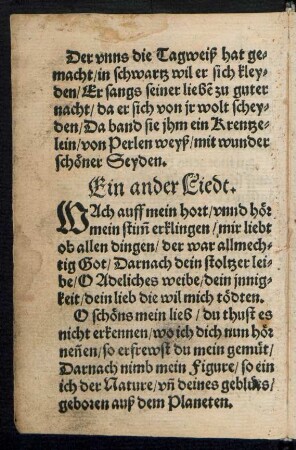 Der vnns die Tagweiß hat ge-
macht/in schwartz wil er sich kley-
den/Er sangs seiner liebẽ zu guter
nacht/da er sich von jr wolt schey-
den/Da band sie jhm ein Krentze-
lein/von Perlen weyß/mit wunder
schöner Seyden.
Ein ander Liedt.
WAch auff mein hort/vnnd hör
mein stim̃ erklingen/mir liebt
ob allen dingen/der war allmech-
tig Got/Darnach dein stoltzer lei-
be/O Adeliches weibe/dein jnnig-
keit/dein lieb die wil mich tödten.
O schöns mein lieb/du thust es
nicht erkennen/wo ich dich nun hör
nen̄en/so erfrewst du mein gemüt/
Darnach nimb mein Figure/so ein
ich der Nature/vn̄ deines geblüts/
geboren auß dem Planeten.